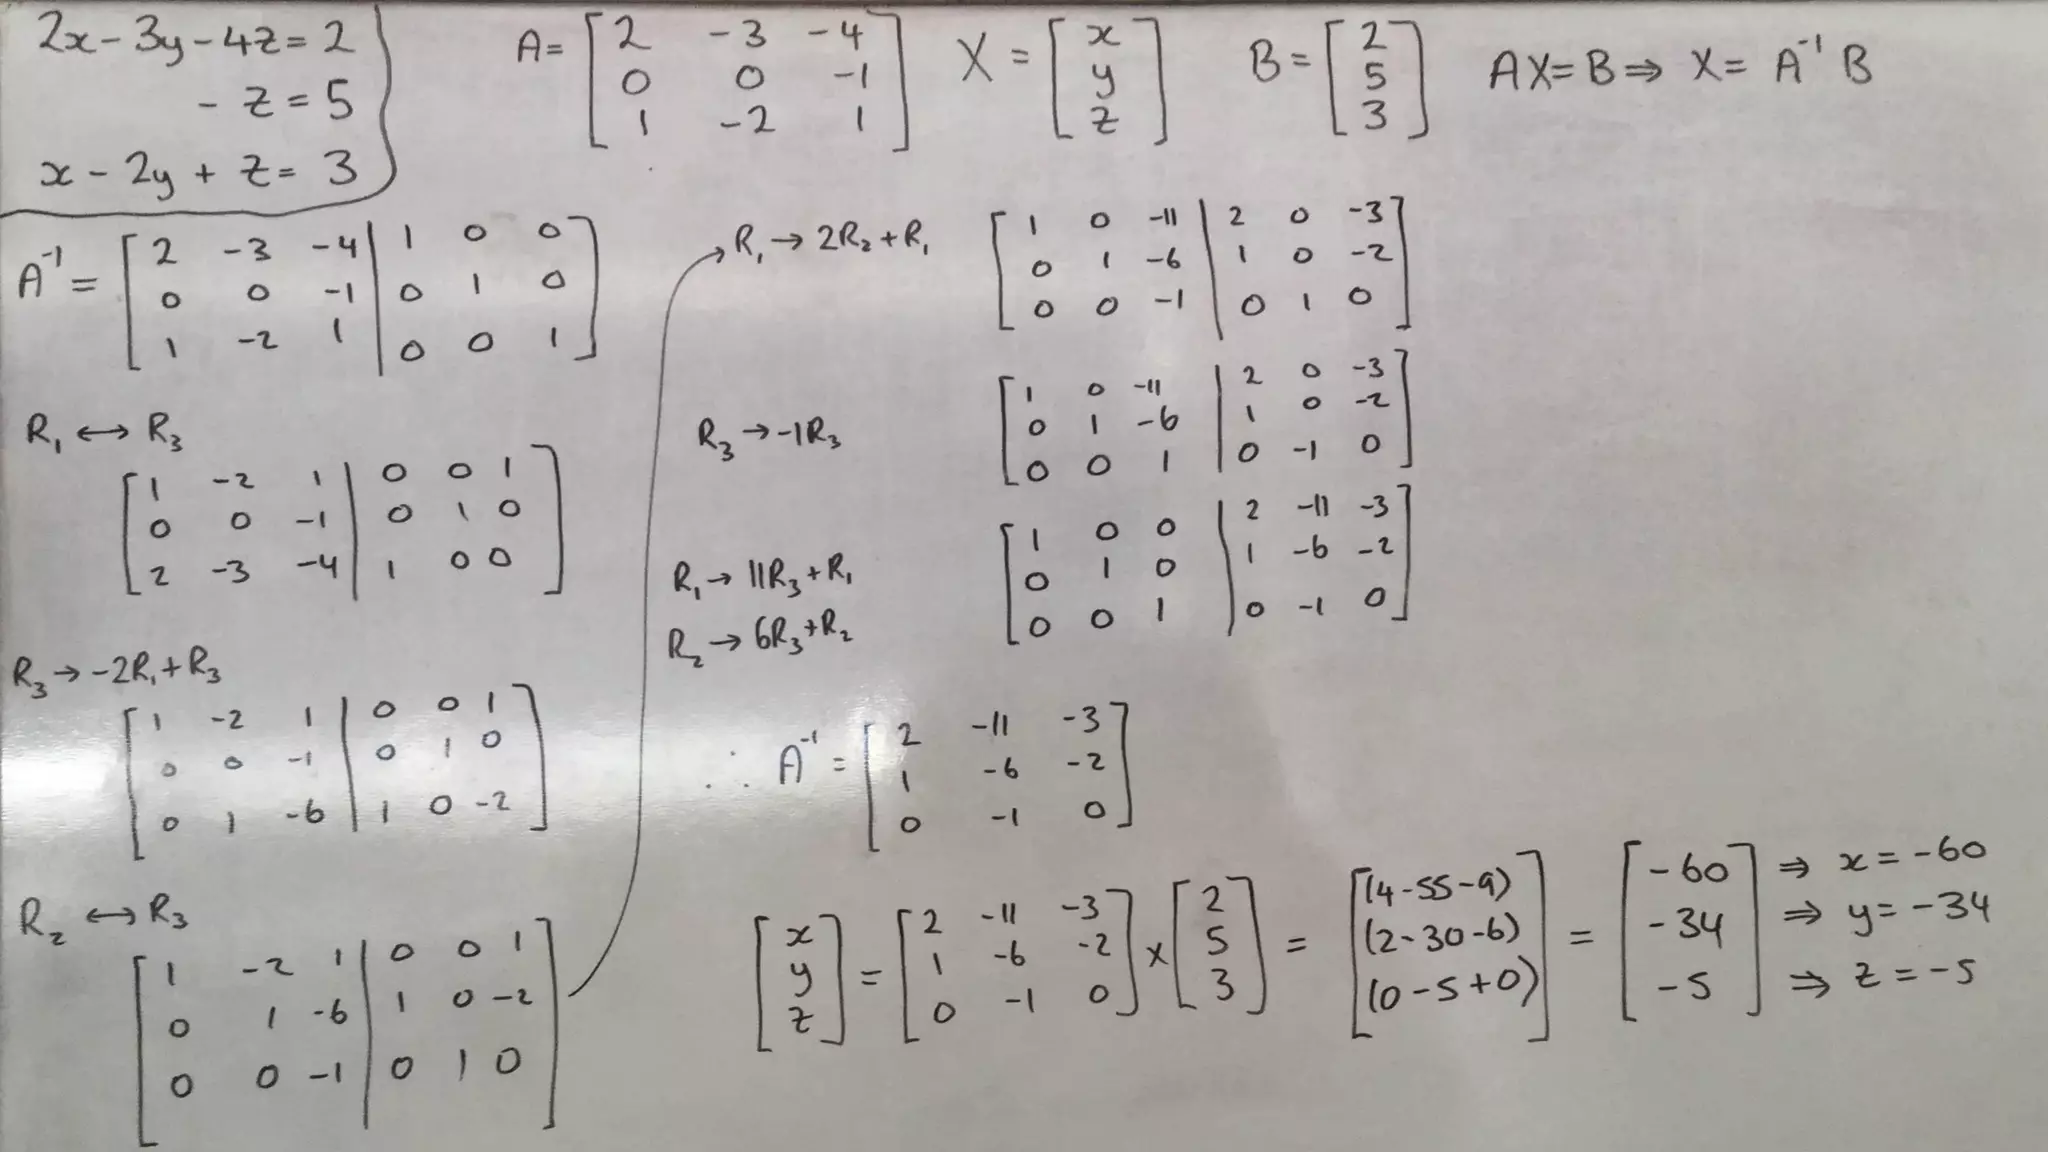 2x - 3y - 4z = 2
- z = 5
x - 2y + z = 3
A = [2 -3 -4
0 0 -1
1 -2 1]
X = [x
y
z]
B = [2
5
3]
AX = B ⇒ X = A⁻¹ B
A⁻¹ = [2 -3 -4 | 1 0 0
0 0 -1 | 0 1 0
1 -2 1 | 0 0 1]
R₁ ↔ R₃
[1 -2 1 | 0 0 1
0 0 -1 | 0 1 0
2 -3 -4 | 1 0 0]
R₃ → -2R₁ + R₃
[1 -2 1 | 0 0 1
0 0 -1 | 0 1 0
0 1 -6 | 1 0 -2]
R₂ ↔ R₃
[1 -2 1 | 0 0 1
0 1 -6 | 1 0 -2
0 0 -1 | 0 1 0]
R₁ → 2R₂ + R₁
[1 0 -11 | 2 0 -3
0 1 -6 | 1 0 -2
0 0 -1 | 0 1 0]
R₃ → -1R₃
[1 0 -11 | 2 0 -3
0 1 -6 | 1 0 -2
0 0 1 | 0 -1 0]
R₁ → 11R₃ + R₁
R₂ → 6R₃ + R₂
[1 0 0 | 2 -11 -3
0 1 0 | 1 -6 -2
0 0 1 | 0 -1 0]
∴ A⁻¹ = [2 -11 -3
1 -6 -2
0 -1 0]
[x
y
z] = [2 -11 -3
1 -6 -2
0 -1 0] × [2
5
3] = [(4-55-9)
(2-30-6)
(0-5+0)] = [-60
-34
-5]
⇒ x = -60
⇒ y = -34
⇒ z = -5